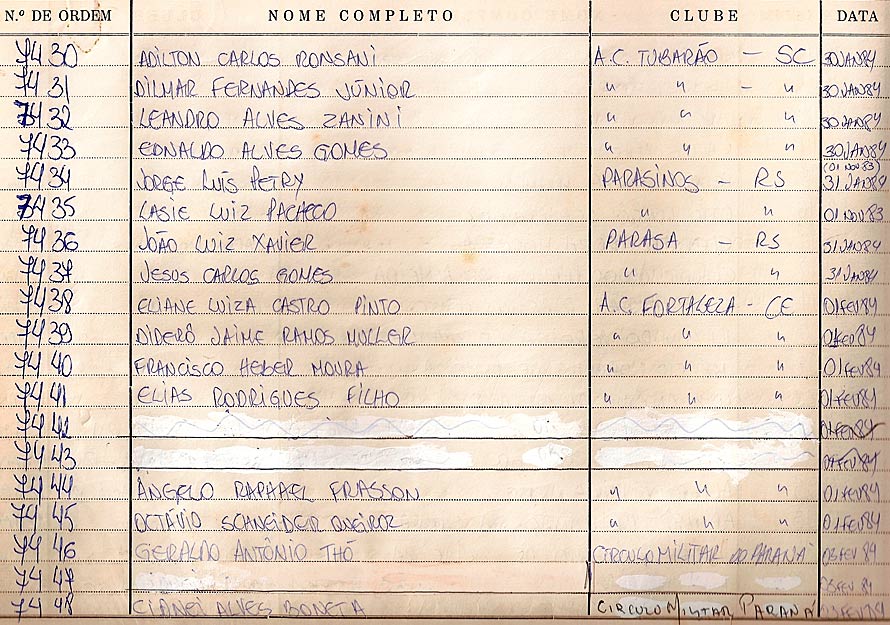 N.º DE ORDEM NOME COMPLETO CLUBE DATA
7430 ADILTON CARLOS RONSANI A.C. TUBARÃO - SC 30JAN84
7431 DILMAR FERNANDES JÚNIOR " " - " 30JAN84
7432 LEANDRO ALVES ZANINI " " " 30JAN84
7433 EDNALDO ALVES GOMES " " " 30JAN84
7434 JORGE LUÍS PETRY PARASINOS - RS (01 NOV 83) 31JAN84
7435 LASIE LUIZ PACHECO " " 01NOV83
7436 JOÃO LUIZ XAVIER PARASA - RS 31JAN84
7437 JESUS CARLOS GOMES " " 31JAN84
7438 ELIANE LUIZA CASTRO PINTO A.C. FORTALEZA - CE 01FEV84
7439 DIDERÔ JAIME RAMOS MULLER " " " 01FEV84
7440 FRANCISCO HEBER MOURA " " " 01FEV84
7441 ELIAS RODRIGUES FILHO " " " 01FEV84
7442 01FEV84
7443 01FEV84
7444 ÂNGELO RAPHAEL FRASSON " " " 01FEV84
7445 OCTÁVIO SCHNEIDER QUEIROZ " " " 01FEV84
7446 GERALDO ANTÔNIO THÓ CIRCULO MILITAR DO PARANÁ 03FEV84
7447 03FEV84
7448 CIDNEI ALVES BONETA CIRCULO MILITAR PARANÁ 03FEV84